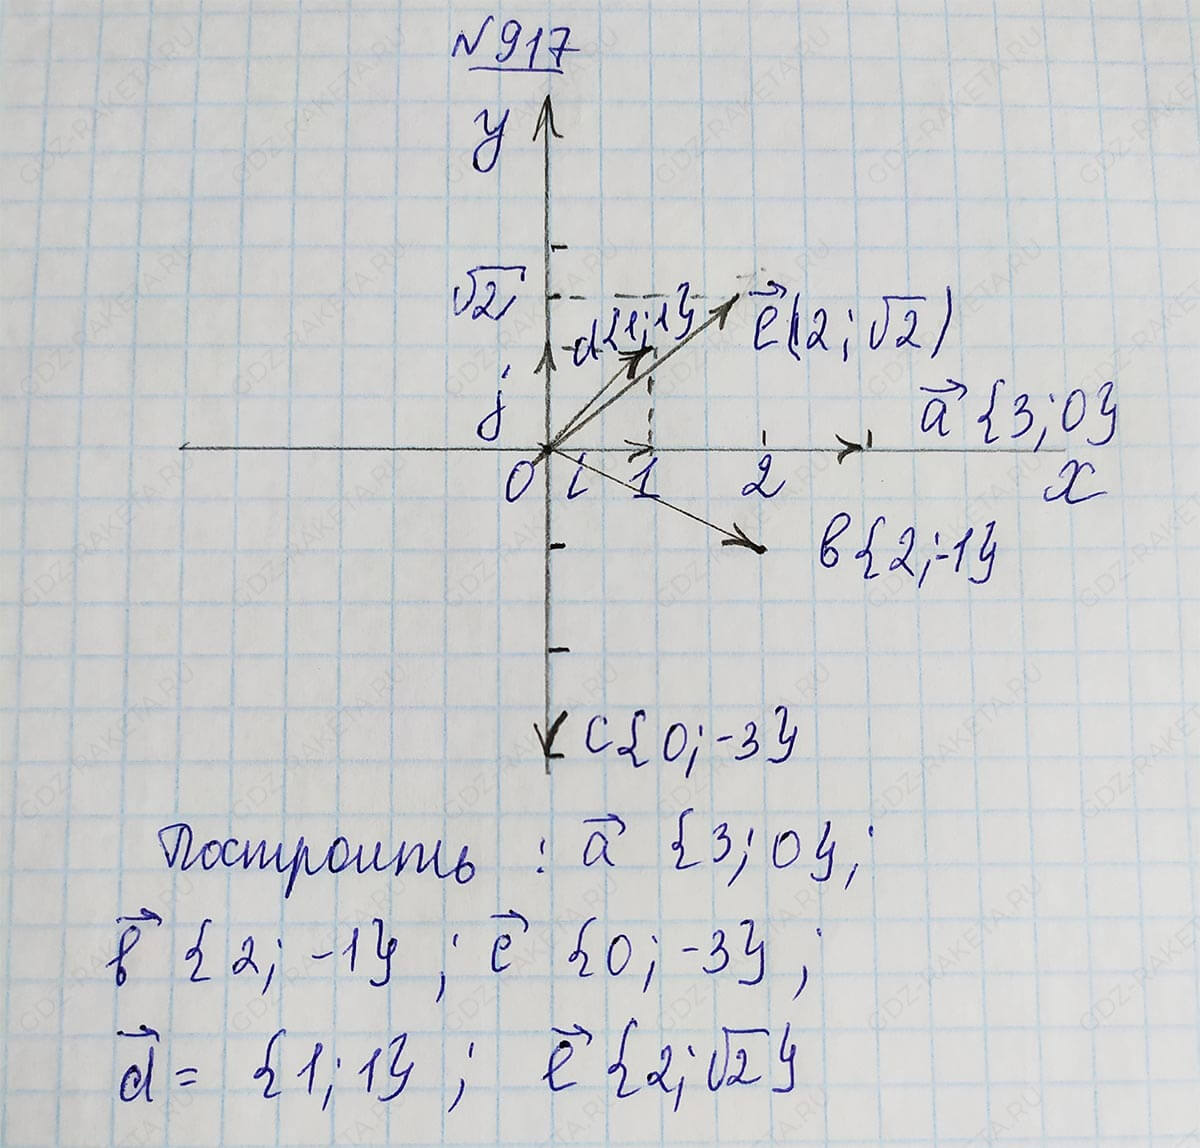 №917
y
√2
d{1;1}
e⃗(2;√2)
j
a⃗ {3;0}
0 i 1 2 x
в{2;-1}
c{0;-3}
Построить : a⃗ {3;0};
в⃗ {2;-1} ; c⃗ {0;-3} ;
d⃗ = {1;1} ; e⃗ {2;√2}
GDZ-RAKETA.RU